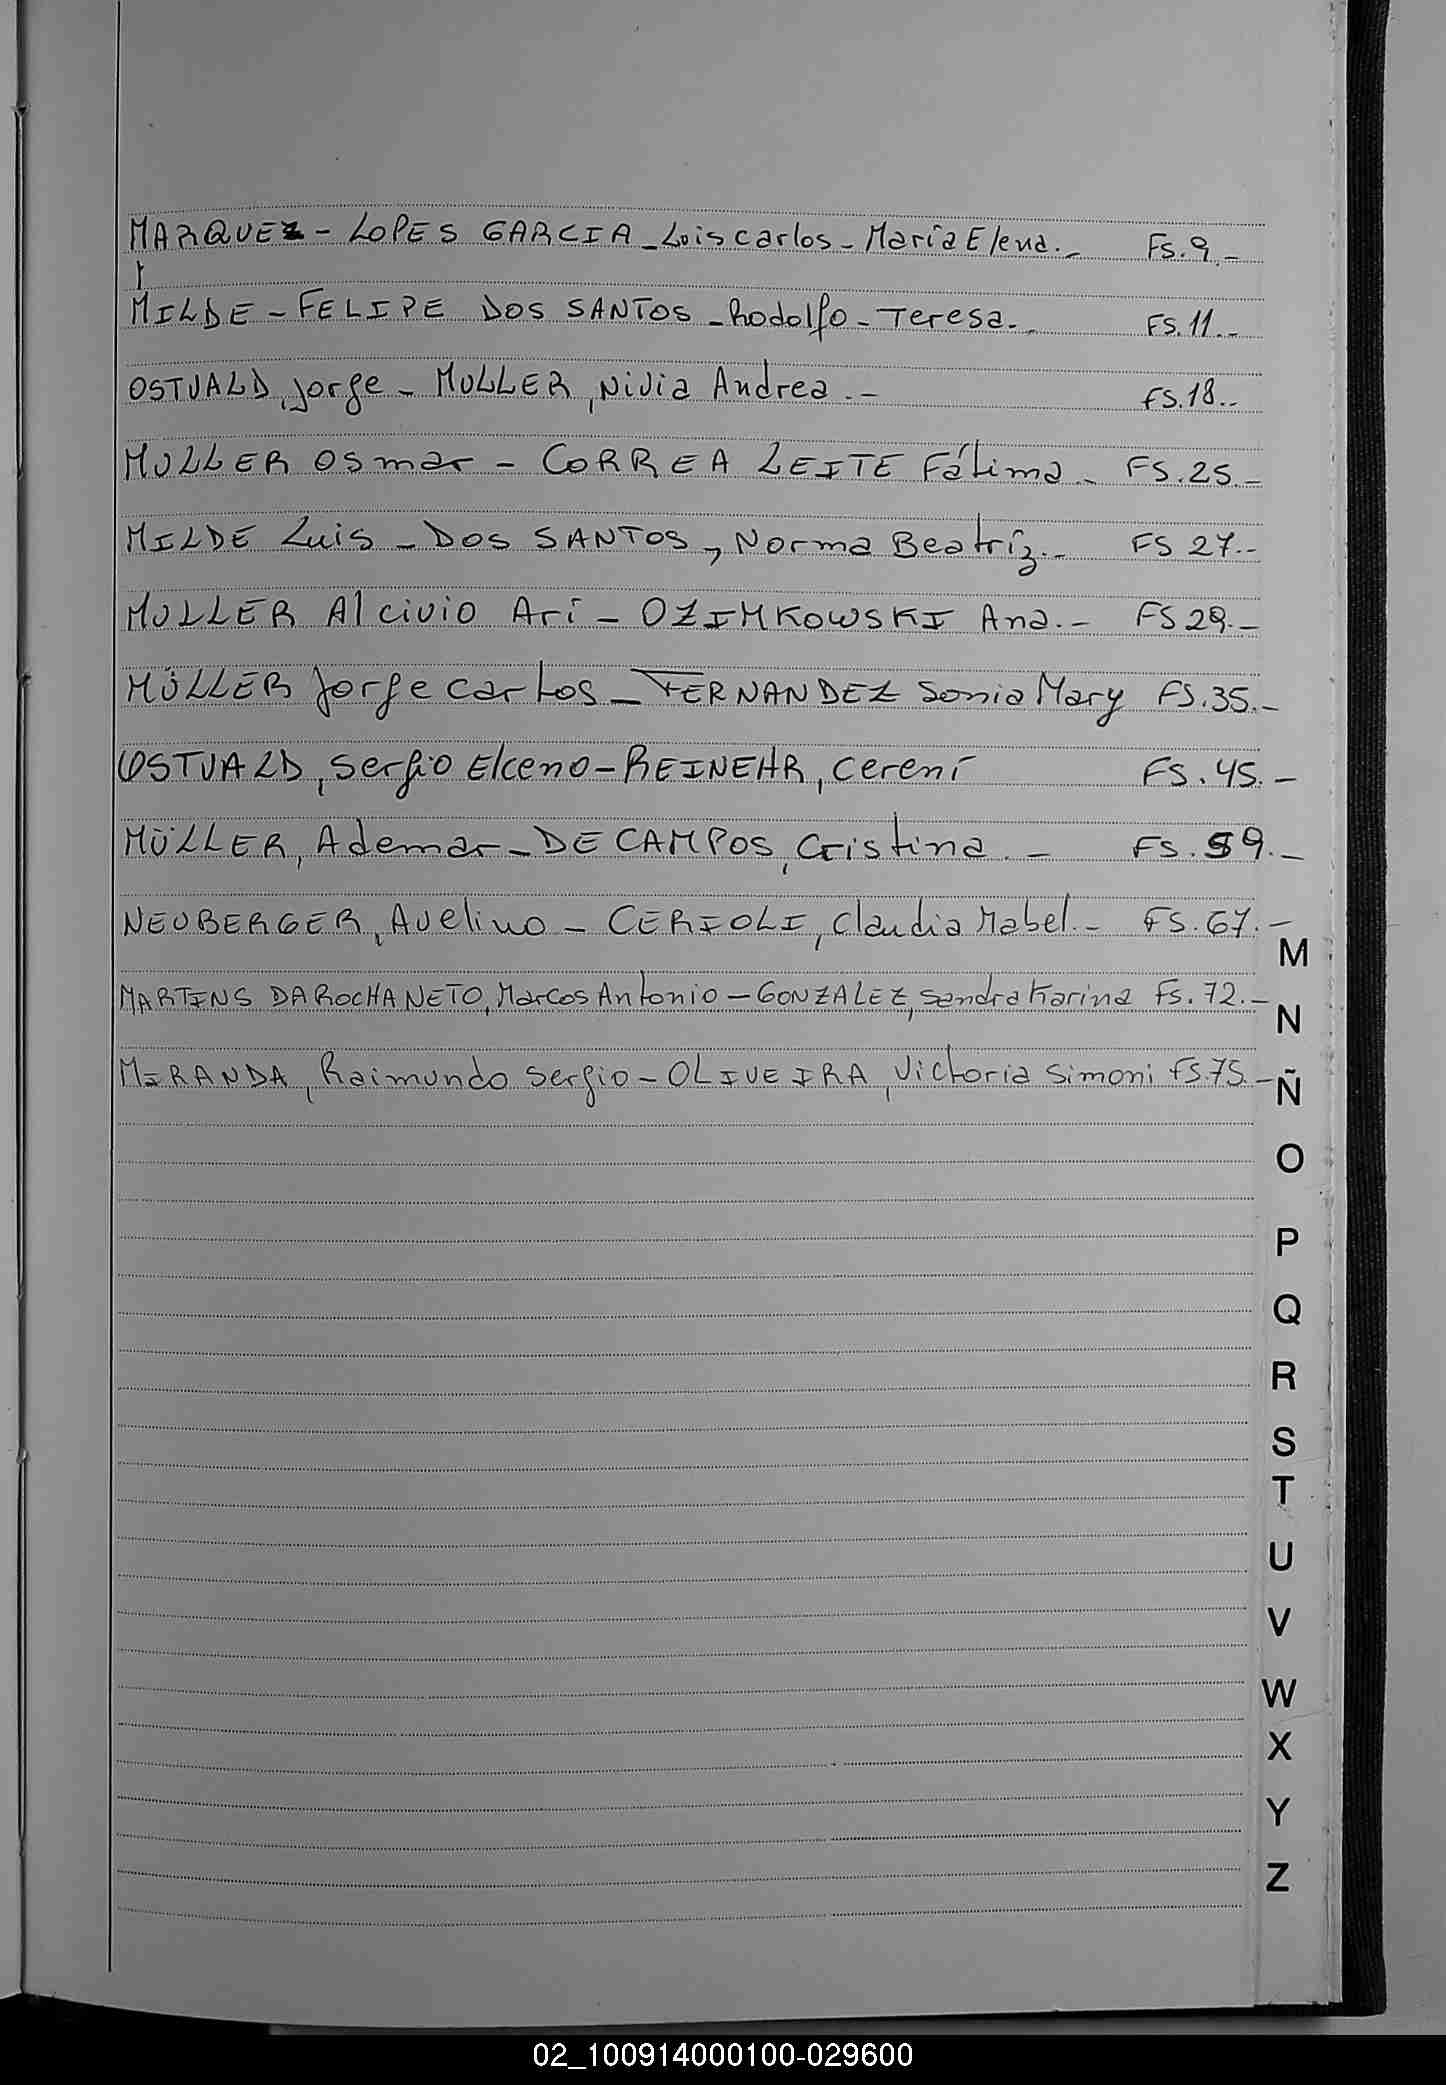 MARQUEZ - LOPES GARCIA - Luis Carlos - María Elena.- Fs. 9.-
MILDE - FELIPE DOS SANTOS - Rodolfo - Teresa.- FS. 11.-
OSTVALD, Jorge - MULLER, Nivia Andrea .- FS. 18.-
MULLER Osmar - CORREA LEITE Fátima - FS. 25.-
MILDE Luis - DOS SANTOS, Norma Beatríz.- FS 27.-
MULLER Alcivio Ari - OZIMKOWSKI Ana.- FS 29.-
MÜLLER Jorge Carlos - FERNANDEZ Sonia Mary FS. 35.-
OSTVALD, Sergio Elceno - REINEHR, Cereni FS. 45.-
MÜLLER, Ademar - DE CAMPOS, Cristina .- FS. 59.-
NEUBERGER, Avelino - CERIOLI, Claudia Mabel.- FS. 67.-
MARTINS DA ROCHA NETO, Marcos Antonio - GONZALEZ, Sandra Karina Fs. 72.-
MIRANDA, Raimundo Sergio - OLIVEIRA, Victoria Simoni FS. 75.-
M
N
Ñ
O
P
Q
R
S
T
U
V
W
X
Y
Z
02_100914000100-029600